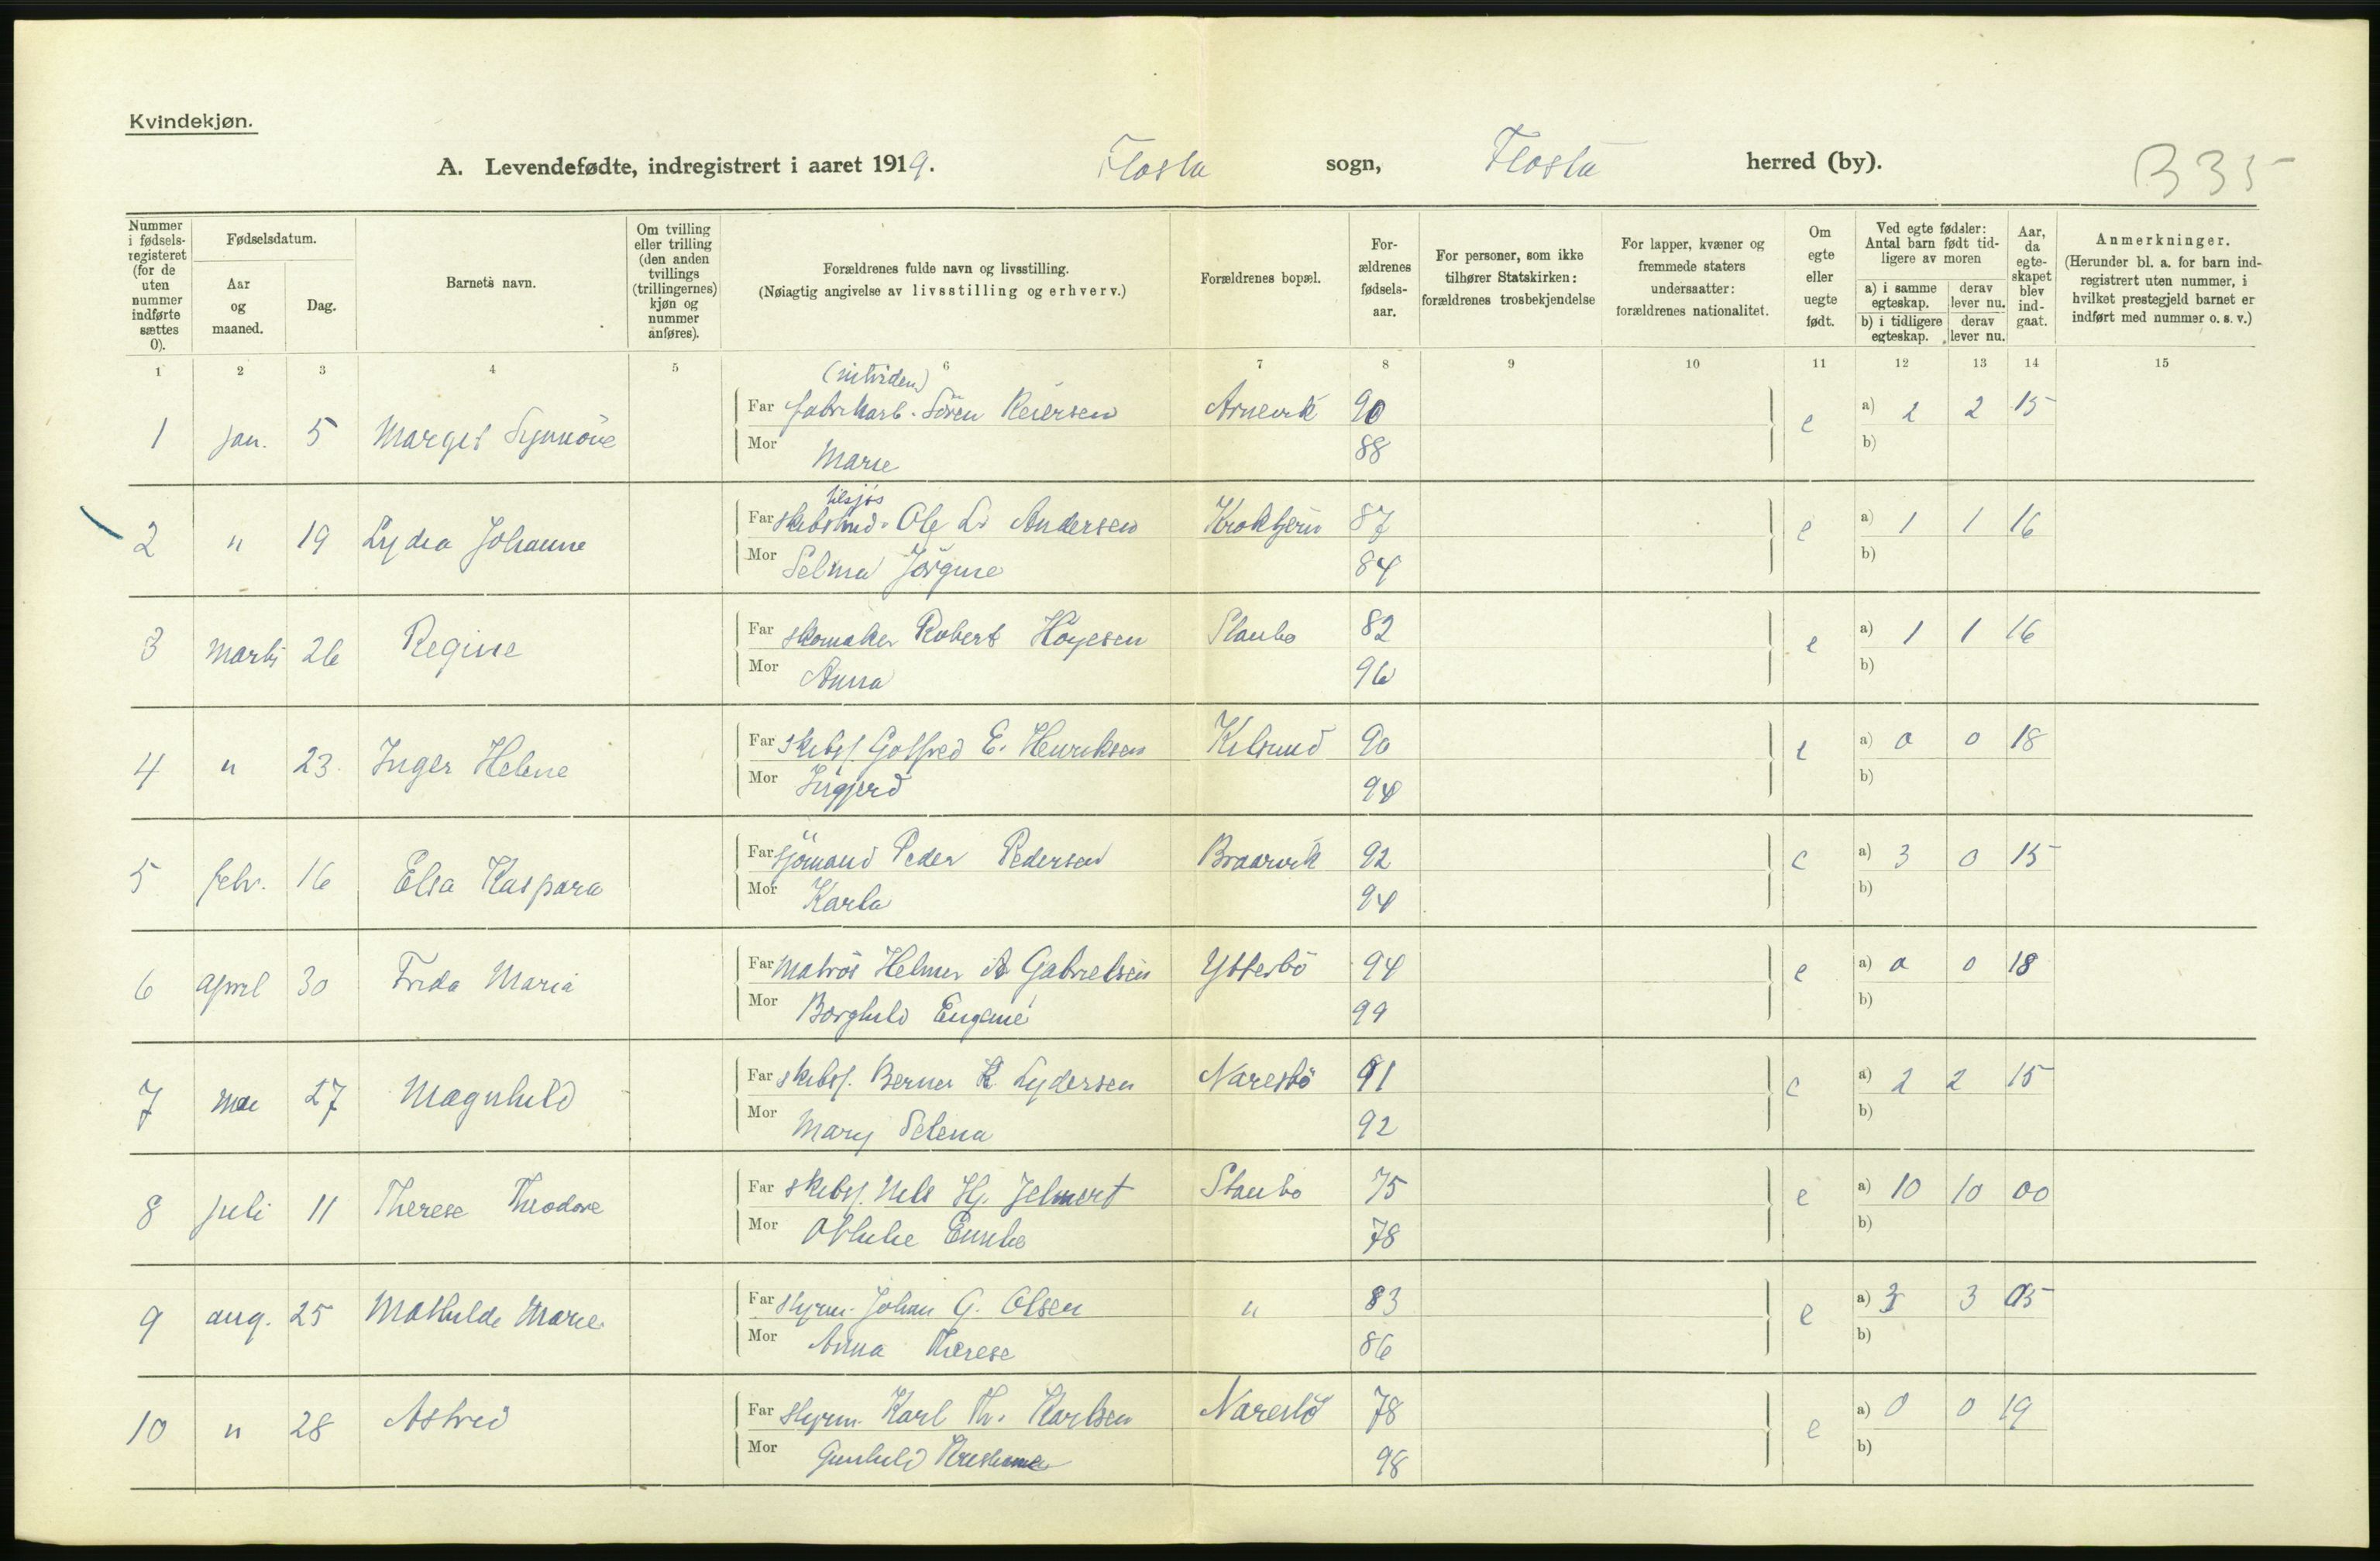 Kvindekjøn.
A. Levendefødte, indregistrert i aaret 1919. Flosta sogn, Flosta herred (by). B 35
Nummer i fødsels-registeret (for de uten nummer indførte sættes 0).
Fødselsdatum.
Aar og maaned.
Dag.
Barnets navn.
Om tvilling eller trilling (den anden tvillings (trillingernes) kjøn og nummer anføres).
Forældrenes fulde navn og livsstilling.
(Nøiagtig angivelse av livsstilling og erhverv.)
Forældrenes bopæl.
For-ældrenes fødsels-aar.
For personer, som ikke tilhører Statskirken: forældrenes trosbekjendelse
For lapper, kvæner og fremmede staters undersaatter: forældrenes nationalitet.
Om egte eller uegte født.
Ved egte fødsler: Antal barn født tid-ligere av moren
a) i samme egteskap. derav lever nu.
b) i tidligere egteskap. derav lever nu.
Aar, da egte-skapet blev ind-gaat.
Anmerkninger.
(Herunder bl. a. for barn ind-registrert uten nummer, i hvilket prestegjeld barnet er indført med nummer o. s. v.)
1 2 3 4 5 6 7 8 9 10 11 12 13 14 15
1 jan. 5 Margit Synnöve Far fabrikarb. Sören Reiersen Arnevik 90 e a) 2 2 15
Mor Marie 88 b)
2 " 19 Lydia Johanne tilsjøs Far skibstmd. Ole L. Andersen Krokfjern 87 e a) 1 1 16
Mor Selma Jörgine 84 b)
3 Marts 26 Regine Far skomaker Robert Höyesen Staubo 82 e a) 1 1 16
Mor Anna 96 b)
4 " 23. Inger Helene Far skibsf. Gotfred E. Henriksen Kilsund 90 e a) 0 0 18
Mor Ingjerd 94 b)
5 febr. 16 Elsa Kaspara Far sjömand Peder Pedersen Braarvik 92 e a) 3 0 15
Mor Karla 94 b)
6 april 30 Frida Maria Far matrös Helmer A Gabrielsen Ytterbö 94 e a) 0 0 18
Mor Borghild Eugenie 99 b)
7 mai 27 Magnhild Far skibsf. Berner R Lydersen Narestö 91 e a) 2 2 15
Mor Mary Selena 92 b)
8 juli 11 Therese Theodore Far skibsf. Nils Hj. Jelmert Staubo 75 e a) 10 10 00
Mor Othilie Emilie 78 b)
9 aug. 25 Mathilde Marie Far styrm. Johan G. Olsen " 83 e a) 3 3 05
Mor Anna Therese 86 b)
10 " 28 Astrid Far styrm. Karl Th. Karlsen Narestö 78 e a) 0 0 19
Mor Gunhild Kristiane 98 b)